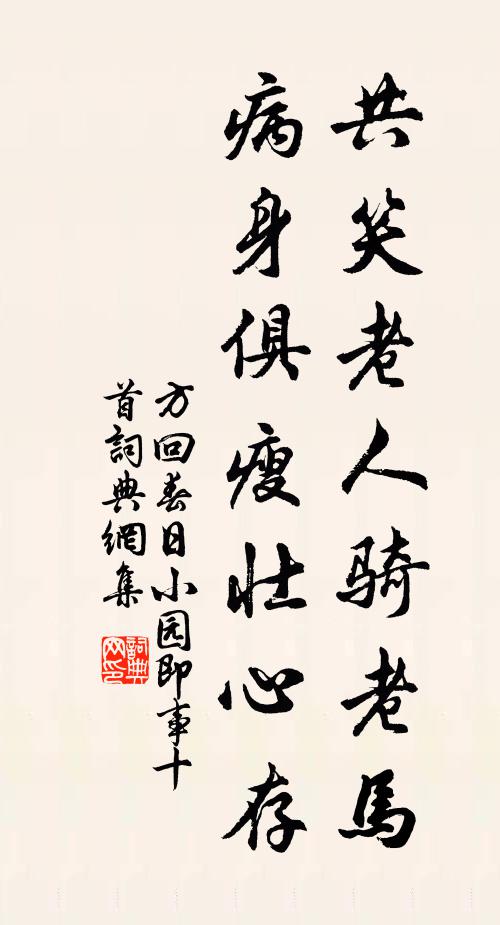 共笑老人骑老馬
病身俱瘦壮心存
方回春日小园即事十
首詞典網集
詞典
网印